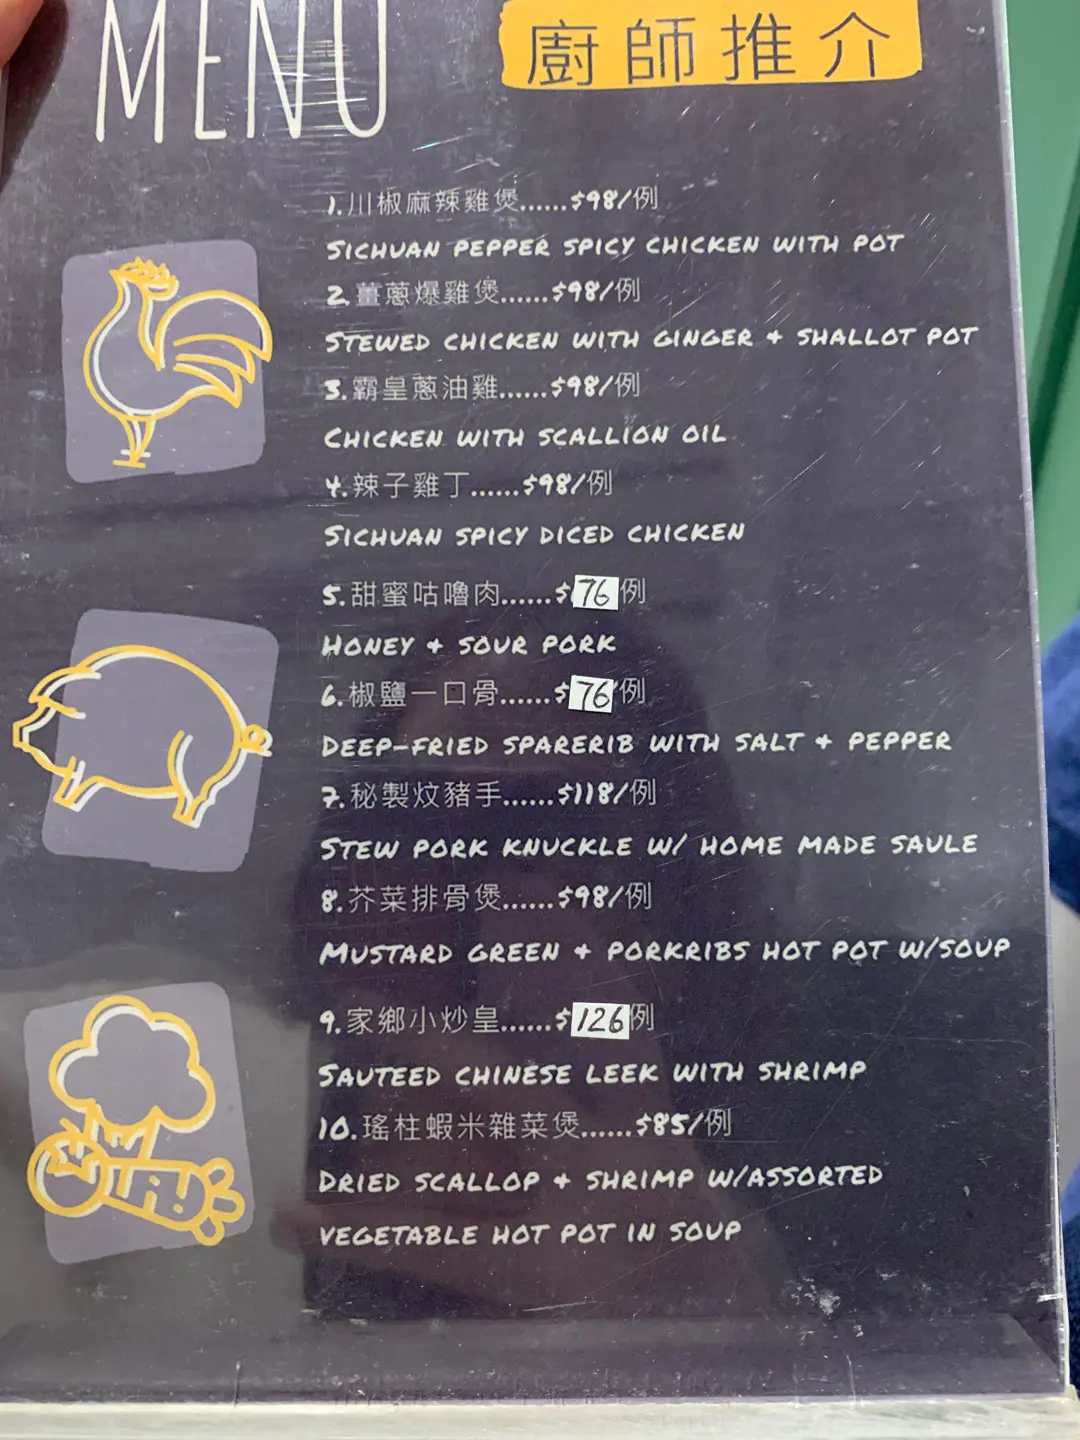 MENU
廚師推介
1.川椒麻辣雞煲......$98/例
SICHUAN PEPPER SPICY CHICKEN WITH POT
2.薑蔥爆雞煲......$98/例
STEWED CHICKEN WITH GINGER + SHALLOT POT
3.霸皇蔥油雞......$98/例
CHICKEN WITH SCALLION OIL
4.辣子雞丁......$98/例
SICHUAN SPICY DICED CHICKEN
5.甜蜜咕嚕肉......$76例
HONEY + SOUR PORK
6.椒鹽一口骨......$76例
DEEP-FRIED SPARERIB WITH SALT + PEPPER
7.秘製炆豬手......$118/例
STEW PORK KNUCKLE W/ HOME MADE SAULE
8.芥菜排骨煲......$98/例
MUSTARD GREEN + PORKRIBS HOT POT W/SOUP
9.家鄉小炒皇......$126例
SAUTEED CHINESE LEEK WITH SHRIMP
10.瑤柱蝦米雜菜煲......$85/例
DRIED SCALLOP + SHRIMP W/ASSORTED
VEGETABLE HOT POT IN SOUP